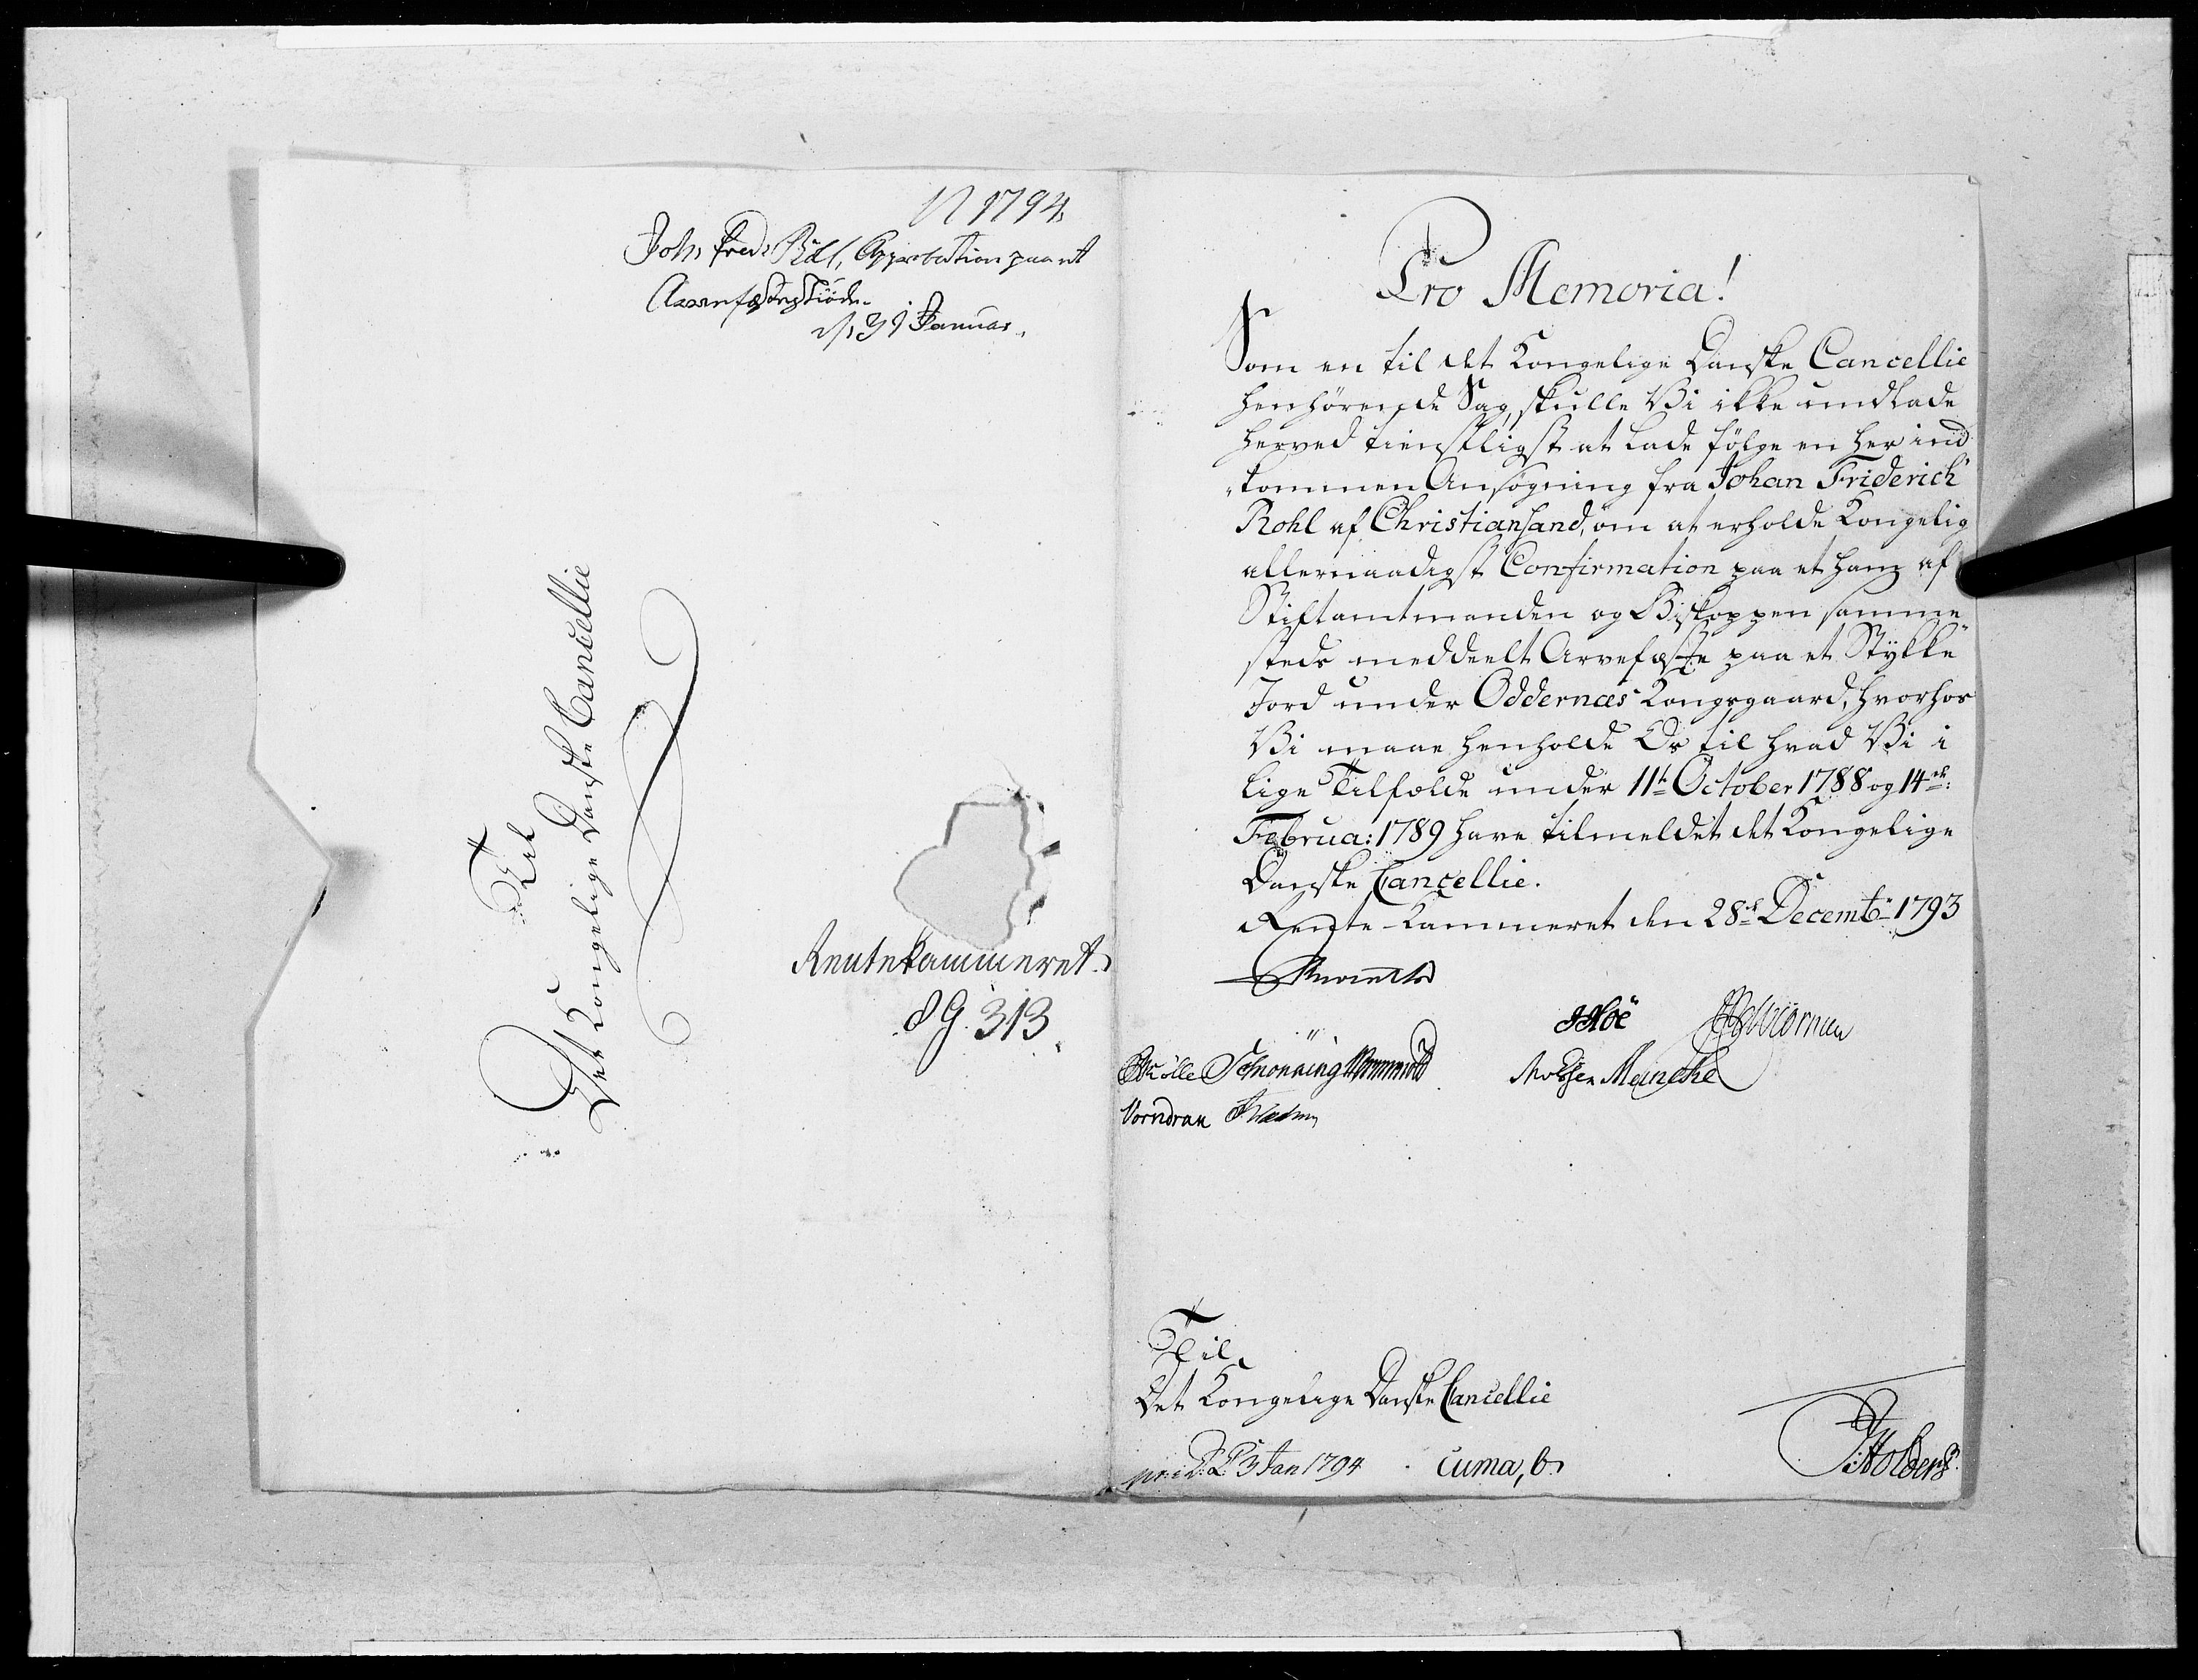 N 1794.
Joh. Fred. Röhl, Approbation paa et
Arvefæsteskiöde.
d. 31 Januar.
Til
Det Kongelige Danske Cancellie
Rentekammeret.
313.
Pro Memoria!
Som en til det Kongelige Danske Cancellie
henhørende Sag, skulle Vi ikke undlade
herved tienstligst at lade følge en her ind
„kommen Ansøgning fra Johan Friderich
Rohl af Christiansand, om at erholde Kongelig
allernaadigst Confirmation paa et ham af
Stiftamtmanden og Biskoppen samme„
steds meddeelt Arvefæste paa et Stykke
Jord under Oddernæs Kongsgaard, hvorhos
Vi maae henholde Os til hvad Vi i
lige Tilfælde under 11te October 1788 og 14de:
Februa: 1789 have tilmeldet det Kongelige
Danske Cancellie.
Rente-Kammeret den 28de Decembr 1793
Reventlow
JHoë Wormen
Schonning Wormskiold Meincke
Vorndran
Til
Det Kongelige Danske Cancellie
3 Jan 1794 cuma, b.
Holbers.